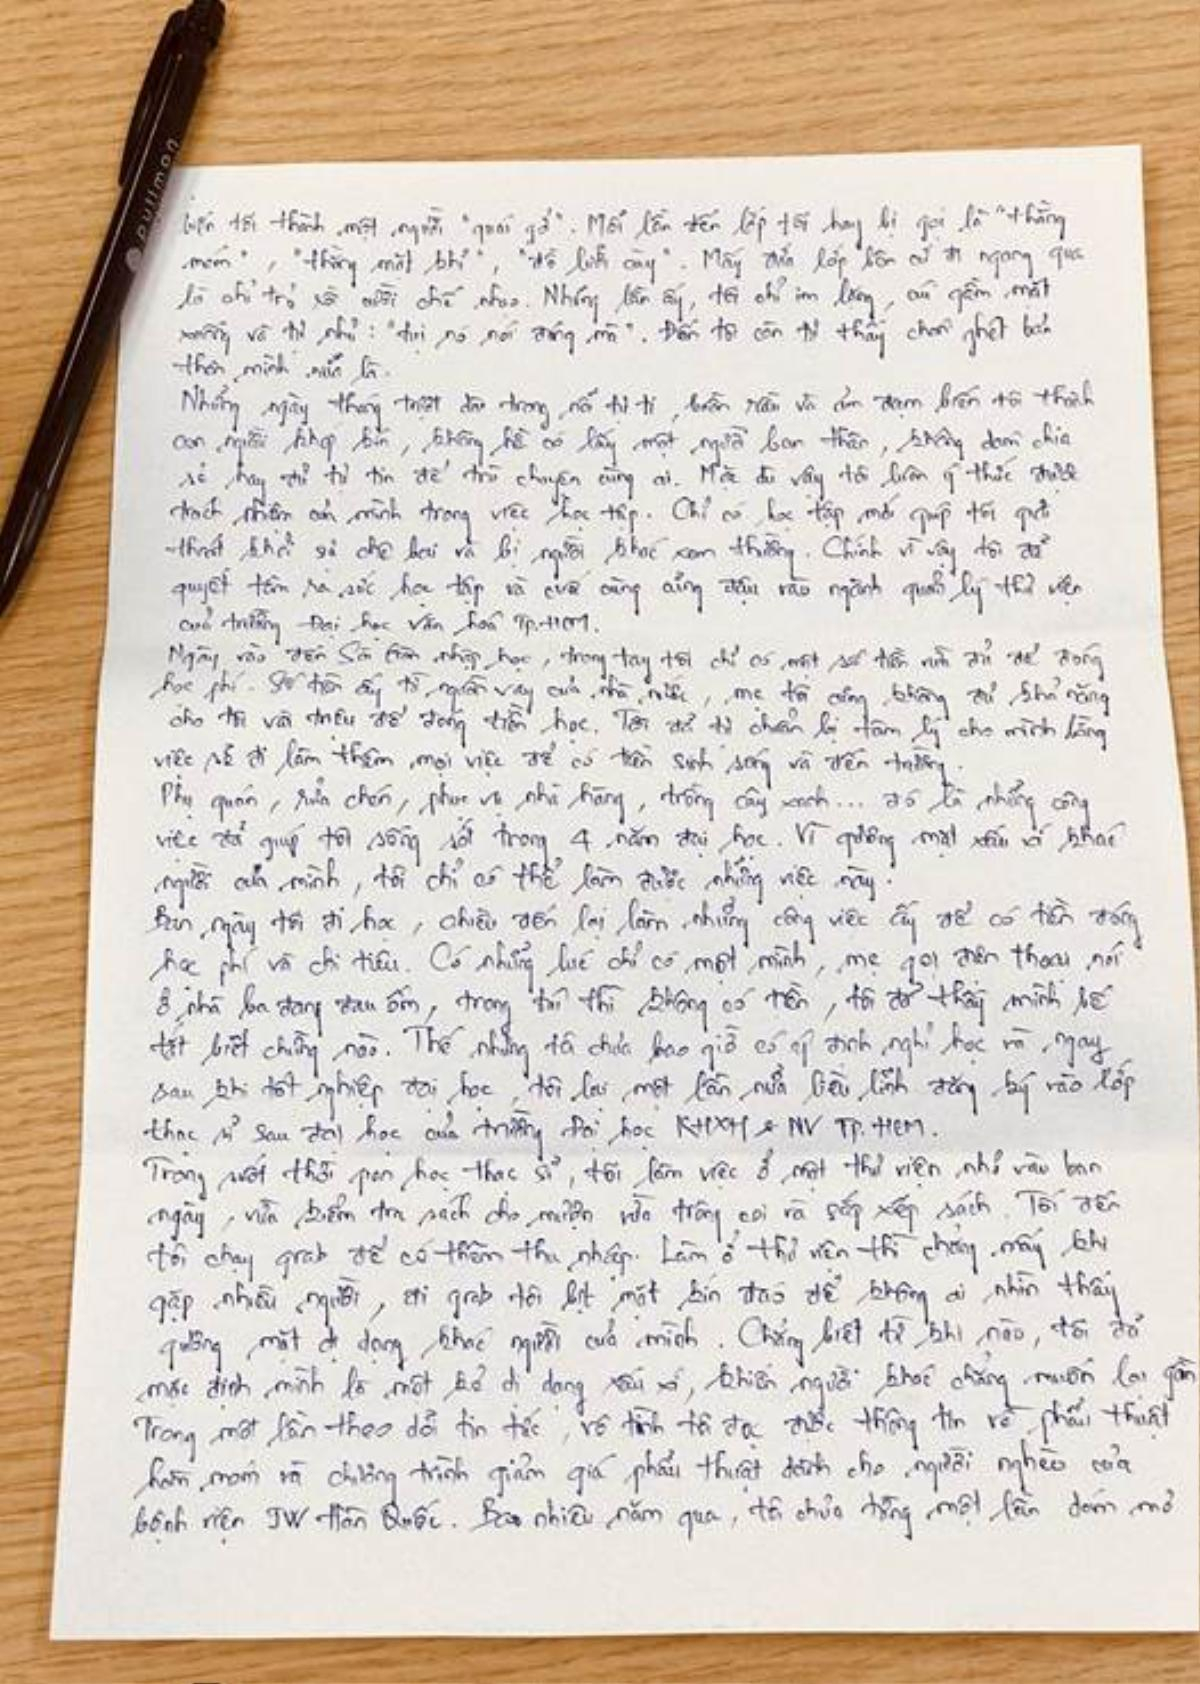 pullman
biến tôi thành một người "quái gở". Mỗi lần đến lớp tôi hay bị gọi là "thằng
móm", "thằng mặt khỉ", "đồ lưỡi cày". Mấy đứa lớp bên cứ đi ngang qua
là chỉ trỏ và cười chế nhạo. Những lần ấy, tôi chỉ im lặng, cúi gằm mặt
xuống và tự nhủ: "tụi nó nói đúng mà". Đến tôi còn tự thấy chán ghét bản
thân mình nữa là.
Những ngày tháng trượt dài trong nỗi tự ti, buồn rầu và ảm đạm biến tôi thành
con người khép kín, không hề có lấy một người bạn thân, không dám chia
sẻ hay đủ tự tin để trò chuyện cùng ai. Mặc dù vậy tôi luôn ý thức được
trách nhiệm của mình trong việc học tập. Chỉ có học tập mới giúp tôi
thoát khỏi sự chê bai và bị người khác xem thường. Chính vì vậy tôi đã
quyết tâm ra sức học tập và cuối cùng cũng đậu vào ngành quản lý thư viện
của trường Đại học Văn hoá Tp.HCM.
Ngày vào đến Sài Gòn nhập học, trong tay tôi chỉ có một số tiền vừa đủ để đóng
học phí. Số tiền ấy từ nguồn vay của nhà nước, mẹ tôi cũng không đủ khả năng
cho tôi vài triệu để đóng tiền học. Tôi đã tự chuẩn bị tâm lý cho mình bằng
việc sẽ đi làm thêm mọi việc để có tiền sinh sống và đến trường.
Phụ quán, rửa chén, phục vụ nhà hàng, trồng cây xanh... đó là những công
việc đã giúp tôi sống sót trong 4 năm đại học. Vì gương mặt xấu xí khác
người của mình, tôi chỉ có thể làm được những việc này.
Ban ngày tôi đi học, chiều đến lại làm những công việc ấy để có tiền đóng
học phí và chi tiêu. Có những lúc chỉ có một mình, mẹ gọi điện thoại nói
ở nhà ba đang đau ốm, trong túi thì không có tiền, tôi đã thấy mình bế
tắt biết chừng nào. Thế nhưng tôi chưa bao giờ có ý định nghỉ học và ngay
sau khi tốt nghiệp đại học, tôi lại một lần nữa liều lĩnh đăng ký vào lớp
thạc sĩ sau đại học của trường Đại học KHXH & NV Tp.HCM.
Trong suốt thời gian học thạc sĩ, tôi làm việc ở một thư viện nhỏ vào ban
ngày, vừa kiểm tra sách cho mượn vừa trông coi và sắp xếp sách. Tối đến
tôi chạy grab để có thêm thu nhập. Làm ở thư viện thì chẳng mấy khi
gặp nhiều người, đi grab tôi bịt mặt kín đáo để không ai nhìn thấy
gương mặt dị dạng khác người của mình. Chẳng biết từ khi nào, tôi đã
mặc định mình là một kẻ dị dạng xấu xí, khiến người khác chẳng muốn lại gần
Trong một lần theo dõi tin tức, vô tình tôi đọc được thông tin về phẫu thuật
hàm móm và chương trình giảm giá phẫu thuật dành cho người nghèo của
bệnh viện JW Hàn Quốc. Bao nhiêu năm qua, tôi chưa từng một lần dám mơ